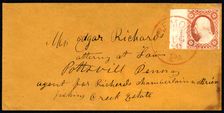 Mr Edgar Richard
attorney at Law
Pottsvill Penna
agent for Richards Chamberlain &
fishing Creek Estate